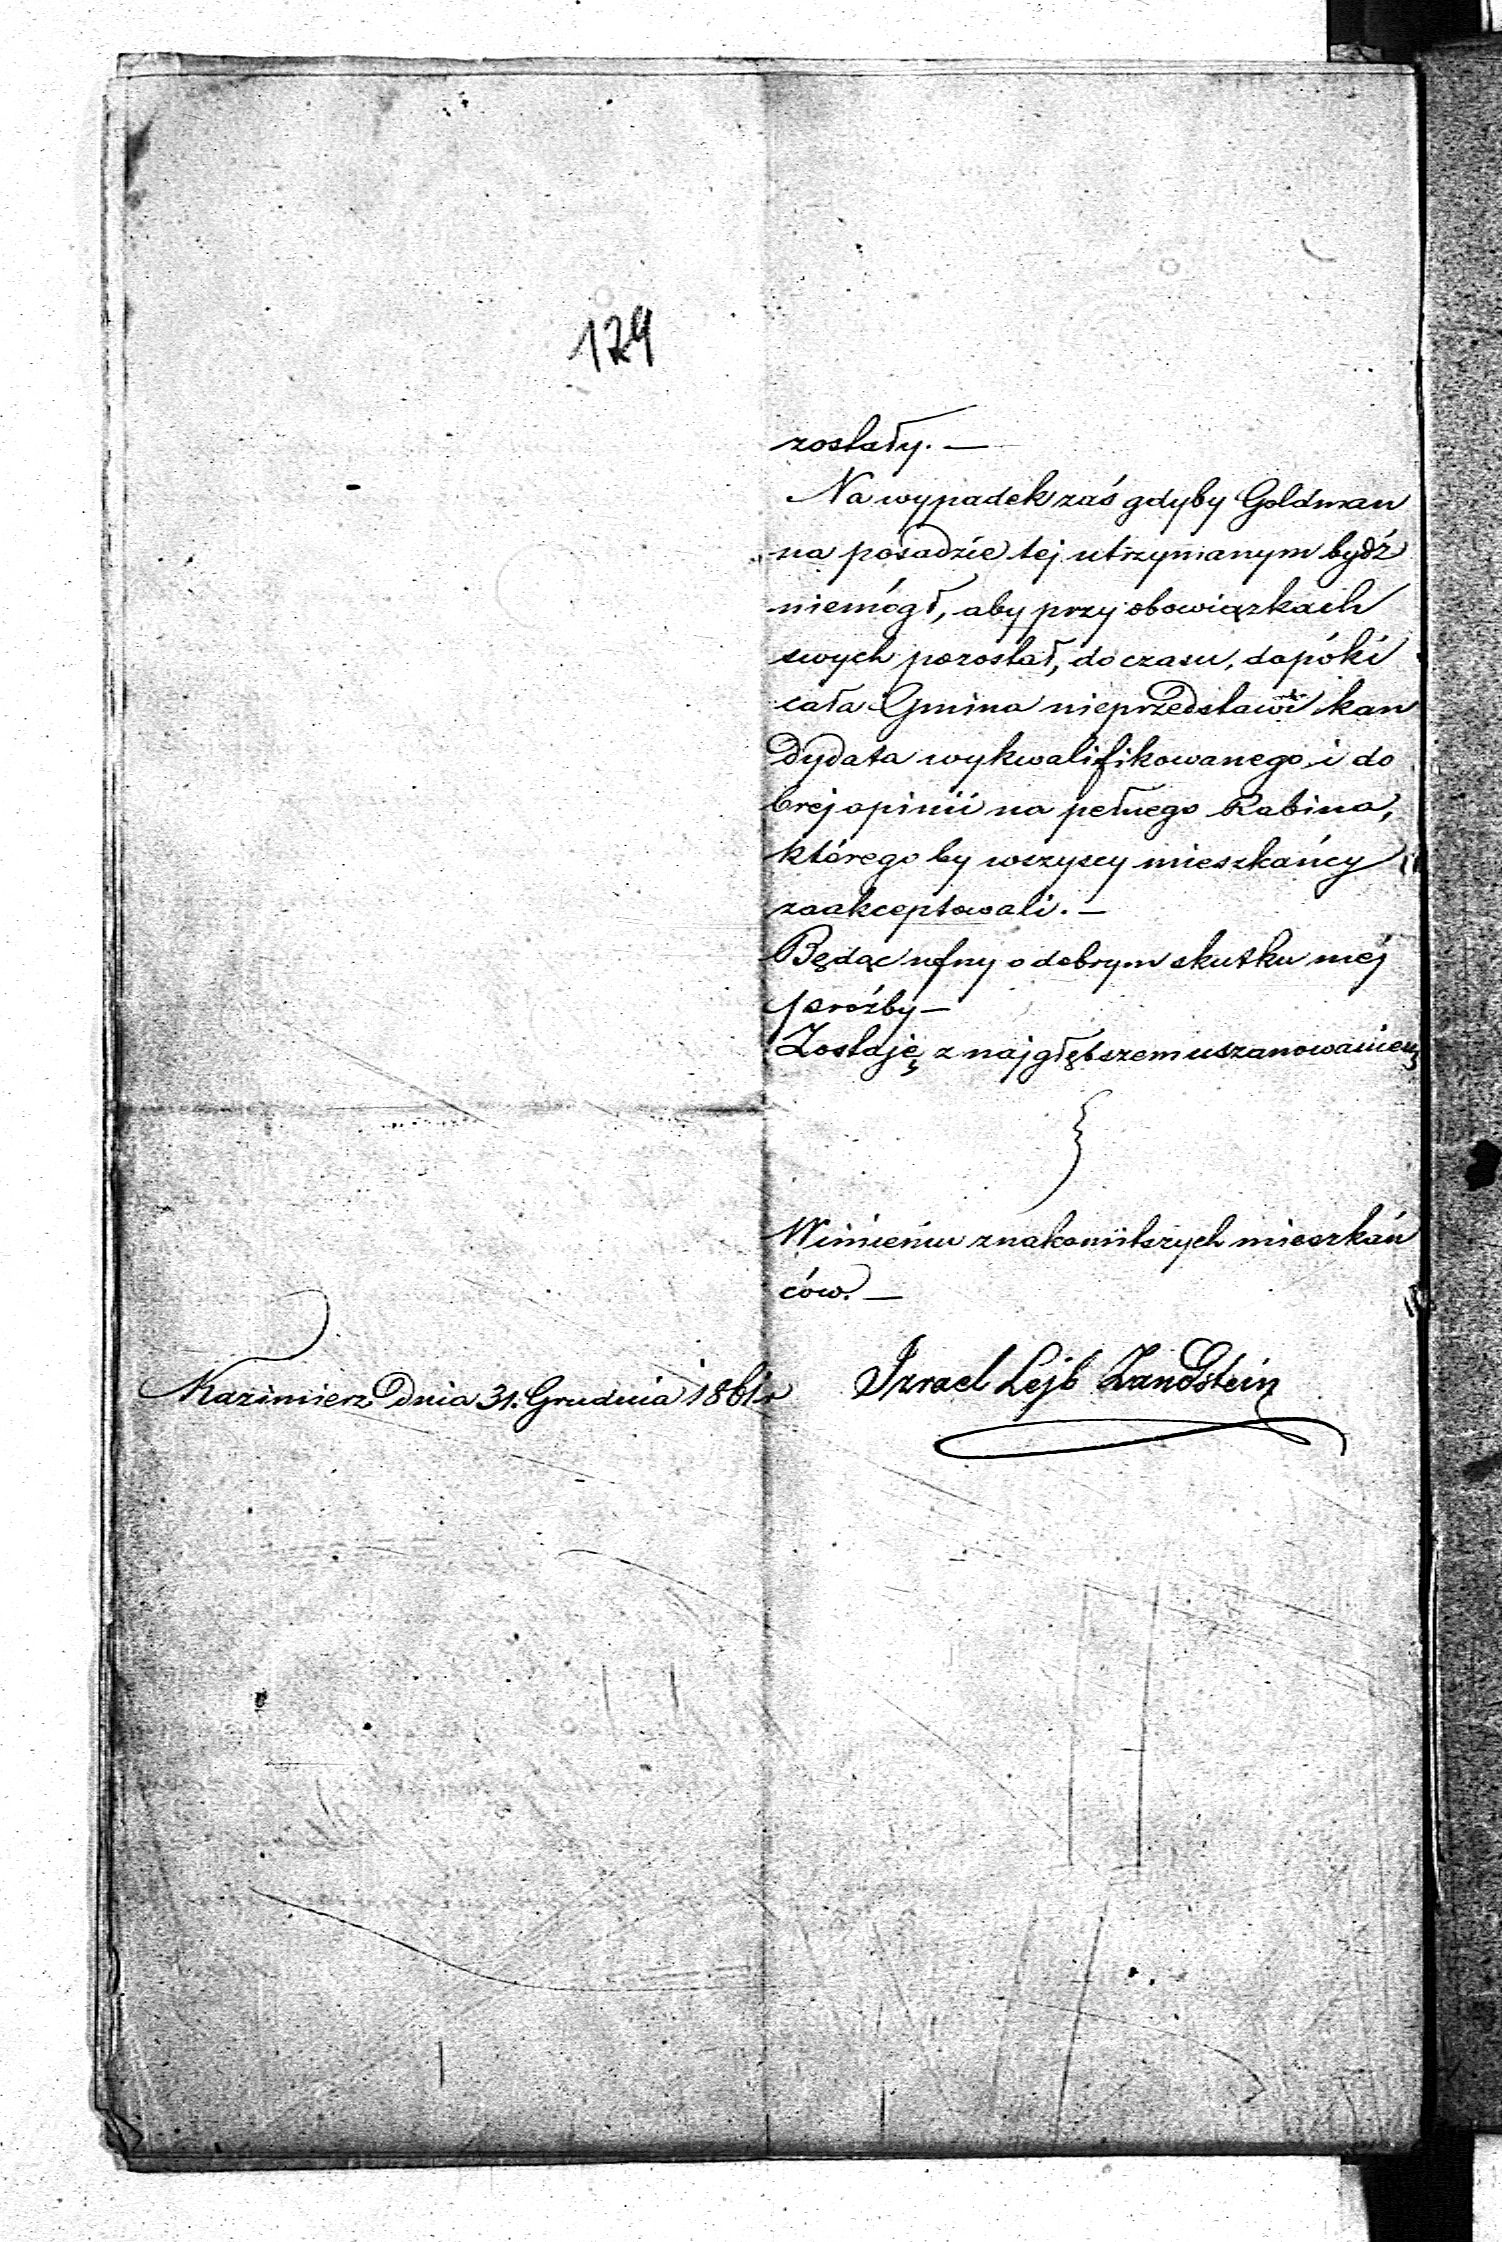 129
zostały. —
Na wypadek zaś gdyby Goldman
na posadzie tej utrzymanym bydź
niemógł, aby przy obowiązkach
swych pozostał, do czasu, dopóki
cała Gmina nieprzedstawi kan
dydata wykwalifikowanego i do
brej opinii na pełnego Rabina,
którego by wszyscy mieszkańcy
zaakceptowali. —
Będąc ufny o dobrym skutku mej
proźby —
Zostaję z najgłębszem uszanowaniem
Wimieniu znakomitszych mieszkań
ców. —
Kazimierz Dnia 31. Grudnia 1861 r
Izrael Lejb Zandstein